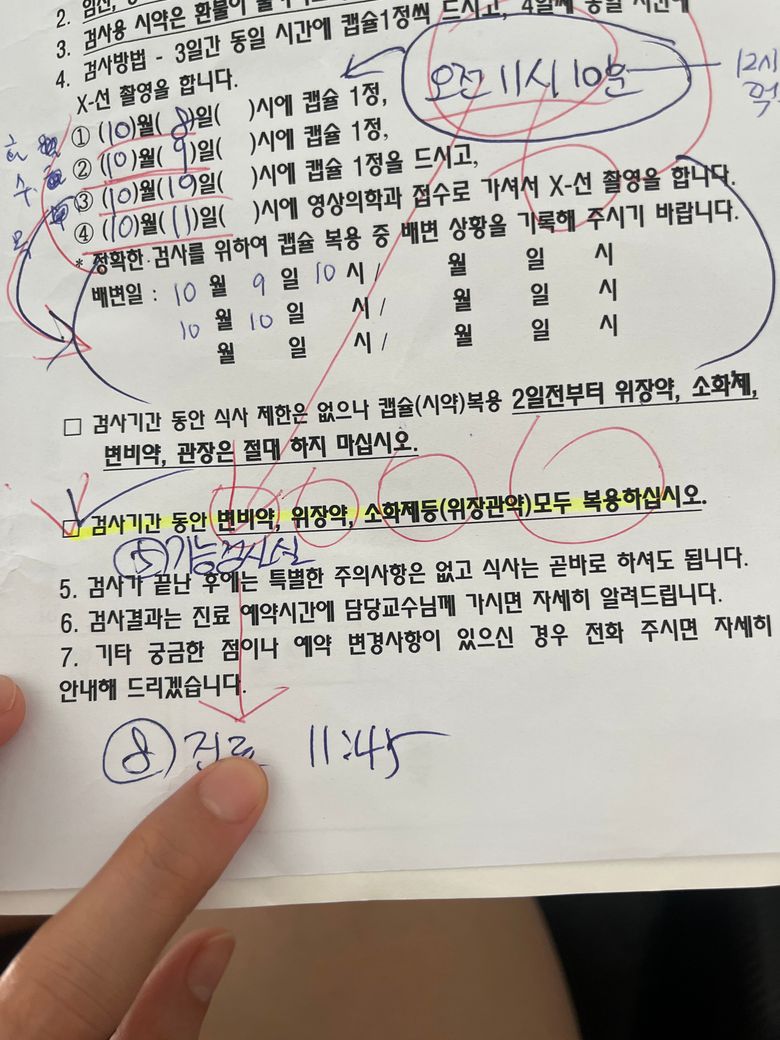 2. 임신,
3. 검사용 시약은 환불이
4. 검사방법 - 3일간 동일 시간에 캡슐1정씩 드시고, 4일째 동일 시간에
X-선 촬영을 합니다.
오전 11시 10분
12시
① (10)월( 8)일( )시에 캡슐 1정,
② (10)월( 9)일( )시에 캡슐 1정,
수
③ (10)월(10)일( )시에 캡슐 1정을 드시고,
④ (10)월(11)일( )시에 영상의학과 접수로 가셔서 X-선 촬영을 합니다.
* 정확한 검사를 위하여 캡슐 복용 중 배변 상황을 기록해 주시기 바랍니다.
배변일 : 10 월 9 일 10 시 / 월 일 시
10 월 10 일 시 / 월 일 시
월 일 시 / 월 일 시
□ 검사기간 동안 식사 제한은 없으나 캡슐(시약)복용 2일전부터 위장약, 소화제,
변비약, 관장은 절대 하지 마십시오.
□ 검사기간 동안 변비약, 위장약, 소화제등(위장관약)모두 복용하십시오.
⑤ 기능검사실
5. 검사가 끝난 후에는 특별한 주의사항은 없고 식사는 곧바로 하셔도 됩니다.
6. 검사결과는 진료 예약시간에 담당교수님께 가시면 자세히 알려드립니다.
7. 기타 궁금한 점이나 예약 변경사항이 있으신 경우 전화 주시면 자세히
안내해 드리겠습니다.
⑧ 진료 11:45